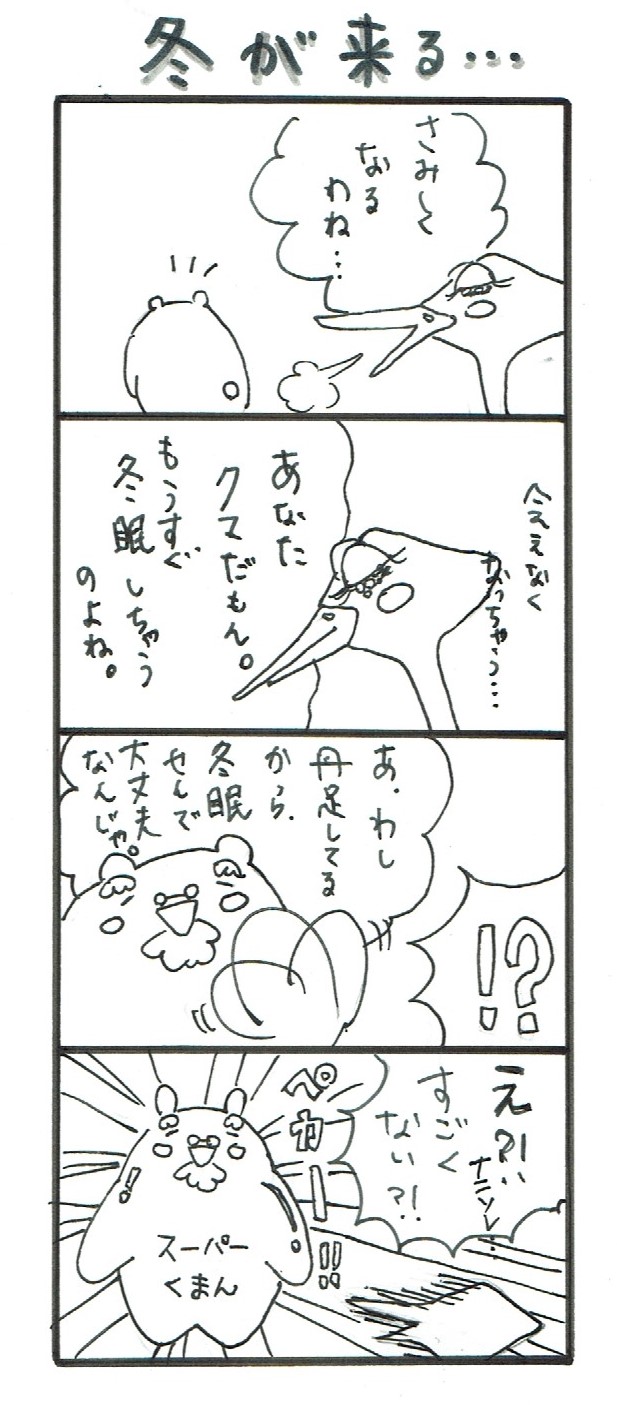 冬が来る…
さみしく
なる
わね…
会えなく
なっちゃう…
あなた
クマだもん。
もうすぐ
冬眠しちゃう
のよね。
あ、わし
丹足してる
から、
冬眠
せんで
大丈夫
なんじゃ。
!?
え?!
ナニソレ…
すごく
ない?!
ペカーー!!
スーパー
くまん